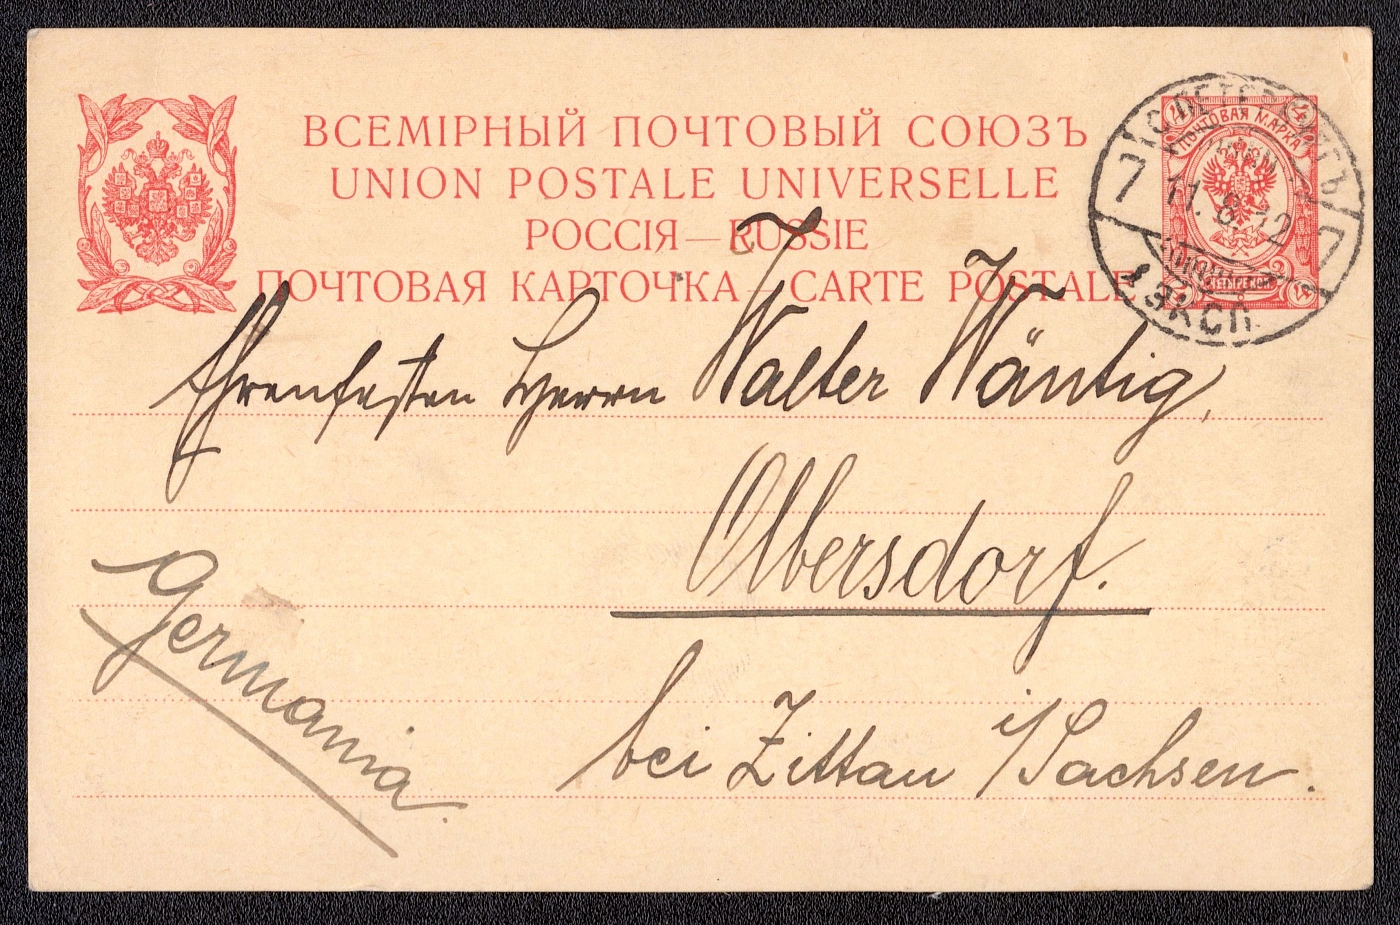 ВСЕМІРНЫЙ ПОЧТОВЫЙ СОЮЗЪ
UNION POSTALE UNIVERSELLE
РОССІЯ — RUSSIE
ПОЧТОВАЯ КАРТОЧКА — CARTE POSTALE
4 4
ПОЧТОВАЯ МАРКА
С.ПЕТЕРБУРГЪ
7 7
11.8.12
1 ЭКСП.
Ehrenfesten Herrn Walter Wäntig,
Olbersdorf.
bei Zittau i/Sachsen.
Germania.